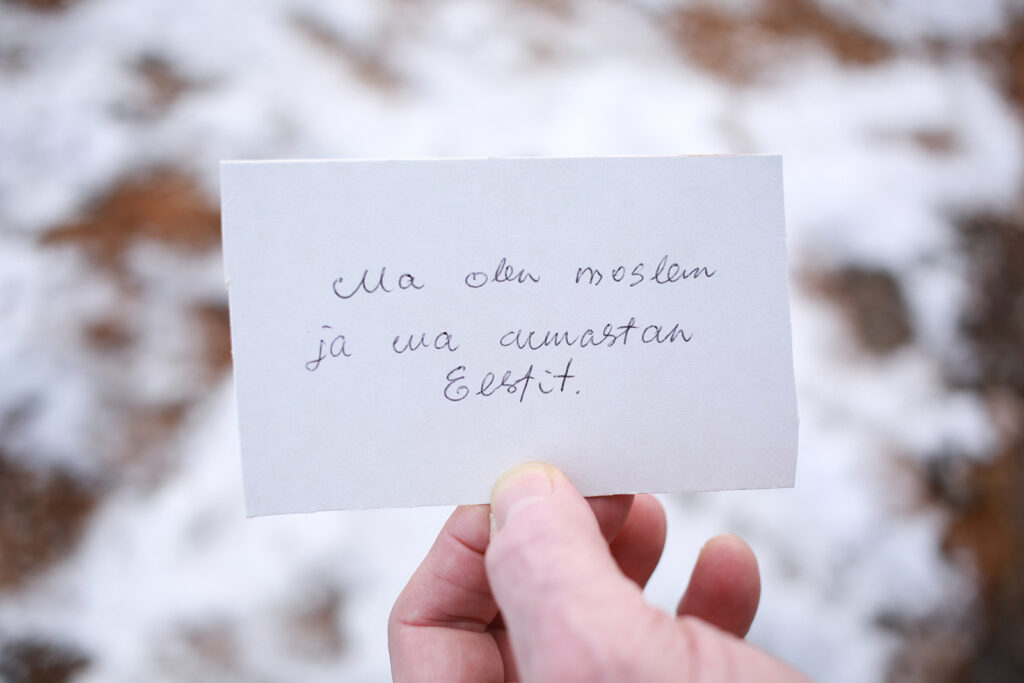 Ma olen moslem
ja ma armastan
Eestit.